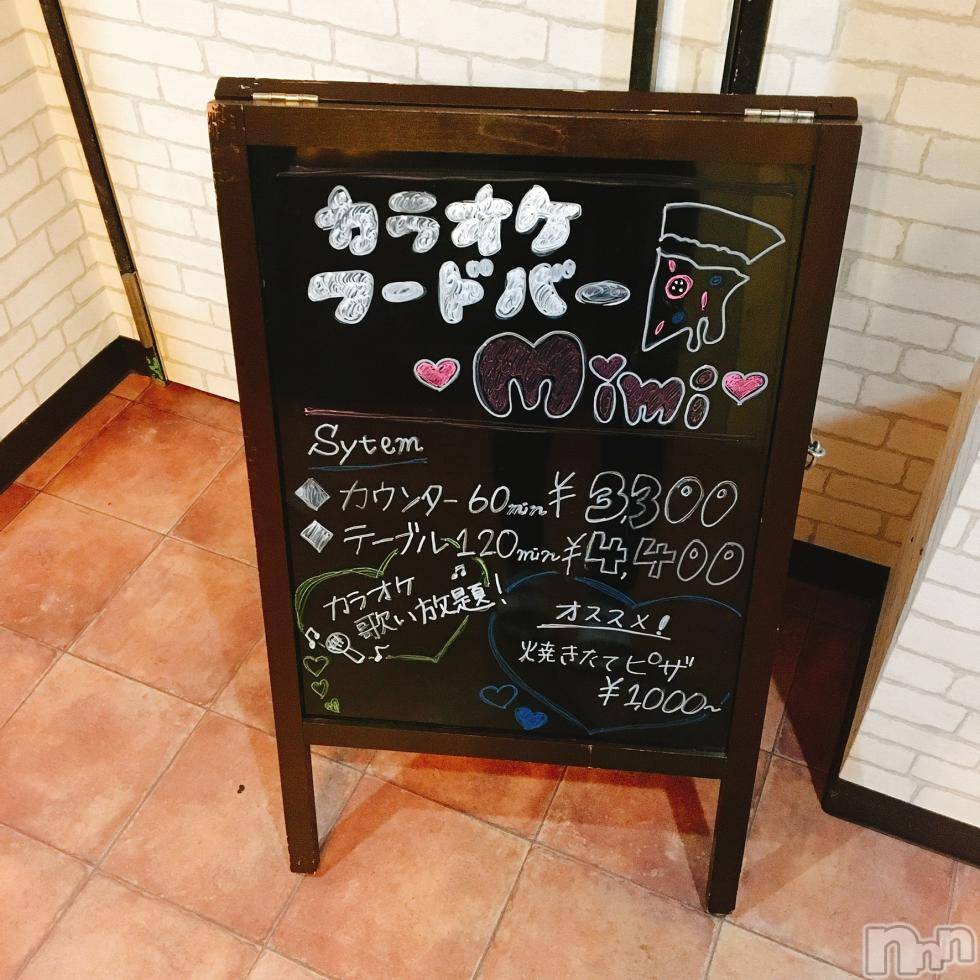 カラオケ
フードバー
Mimi
Sytem
カウンター 60min ¥3,300
テーブル 120min ¥4,400
カラオケ
歌い放題!
オススメ!
焼きたてピザ
¥1,000~
nnn